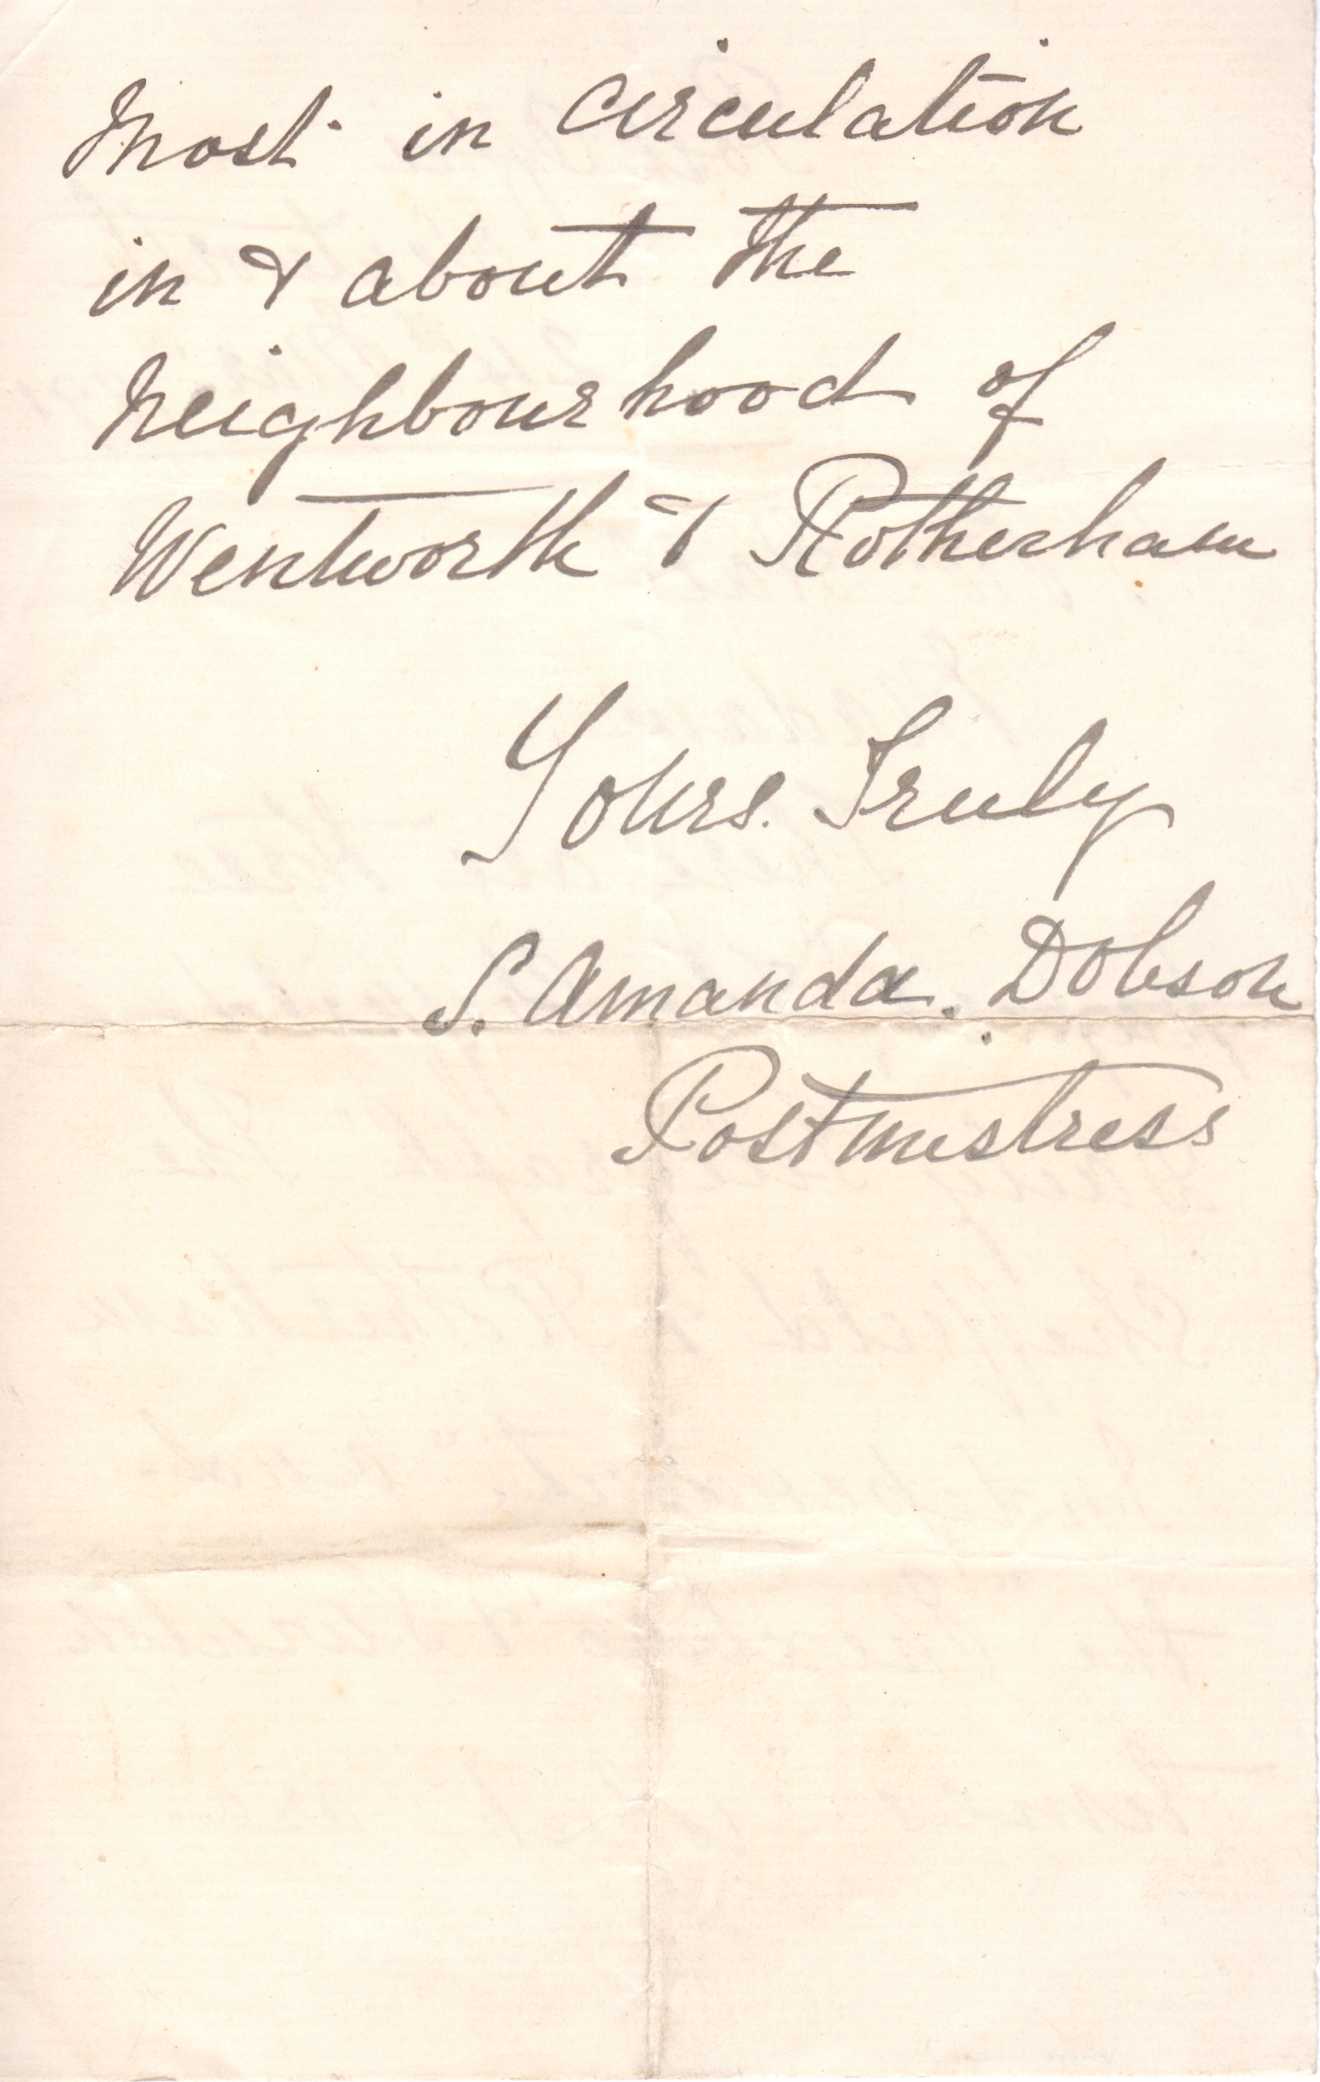 Most in circulation
in & about the
Neighbourhood of
Wentworth & Rotherham
Yours. Truly
S. Amanda. Dobson
Postmistress